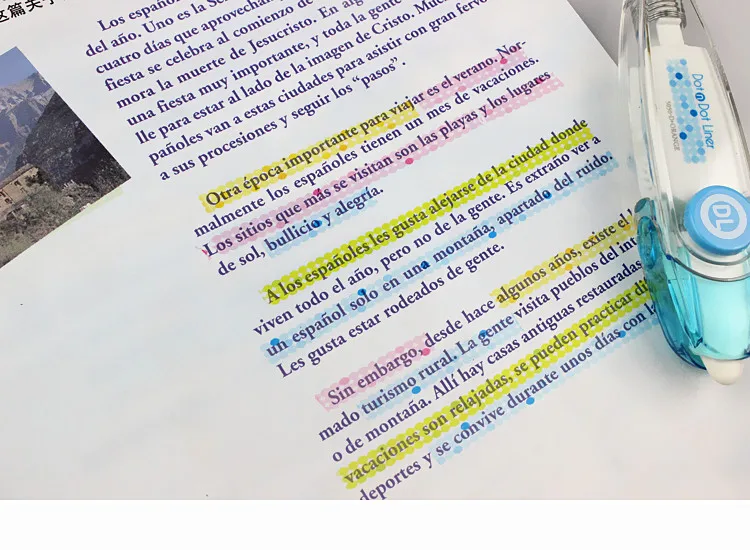 这篇关于
Los españo
del año. Uno es la Se
cuatro días que aprovechan
fiesta se celebra al comienzo de
mora la muerte de Jesucristo. En alg
una fiesta muy importante, y toda la gente
lle para estar al lado de la imagen de Cristo. Muc
pañoles van a estas ciudades para asistir con gran fervo
a sus procesiones y seguir los "pasos".
Otra época importante para viajar es el verano. Nor-
malmente los españoles tienen un mes de vacaciones.
Los sitios que más se visitan son las playas y los lugares
de sol, bullicio y alegría.
A los españoles les gusta alejarse de la ciudad donde
viven todo el año, pero no de la gente. Es extraño ver a
un español solo en una montaña, apartado del ruido.
Les gusta estar rodeados de gente.
Sin embargo, desde hace algunos años, existe el
mado turismo rural. La gente visita pueblos del int
o de montaña. Allí hay casas antiguas restauradas
vacaciones son relajadas, se pueden practicar di
deportes y se convive durante unos días con la
Dot n Dot Liner
DL